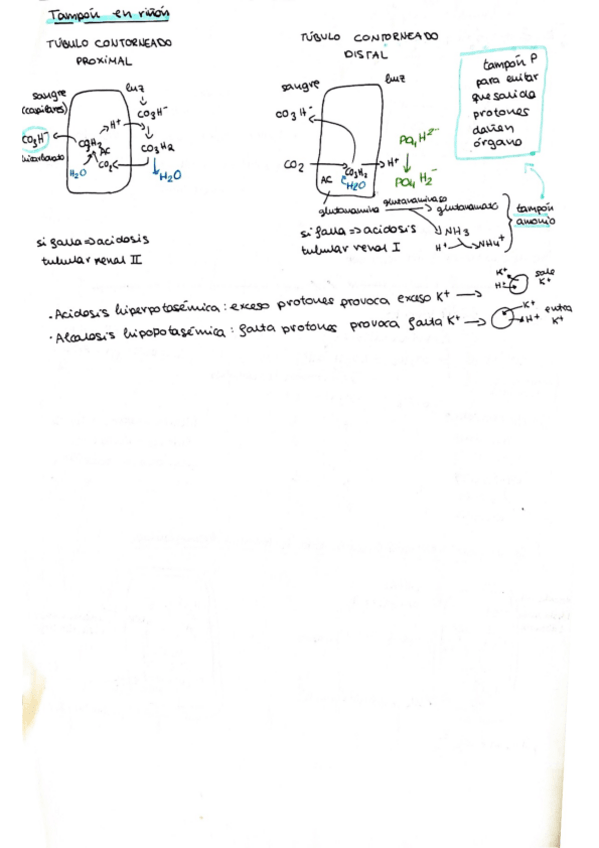 Tampón en riñón
TÚBULO CONTORNEADO
PROXIMAL
sangre
(capilares)
luz
CO3H-
H+
CO3H-
CO3H2
AC
CO2
H2O
CO3H2
H2O
bicarbonato
si falla => acidosis
tubular renal II
TÚBULO CONTORNEADO
DISTAL
sangre
luz
CO3H-
CO2
CO3H2
H+
AC
H2O
PO4H2-
PO4H2-
glutamamina
glutamaminasa
glutamato
NH3
H+
NH4+
si falla => acidosis
tubular renal I
tampón P
para evitar
que salida
protones
dañen
órgano
tampón
amonio
· Acidosis hiperpotasémica: exceso protones provoca exceso K+ →
K+
H+
sale
K+
· Alcalosis hipopotasémica: falta protones provoca falta K+ →
K+
H+
entra
K+